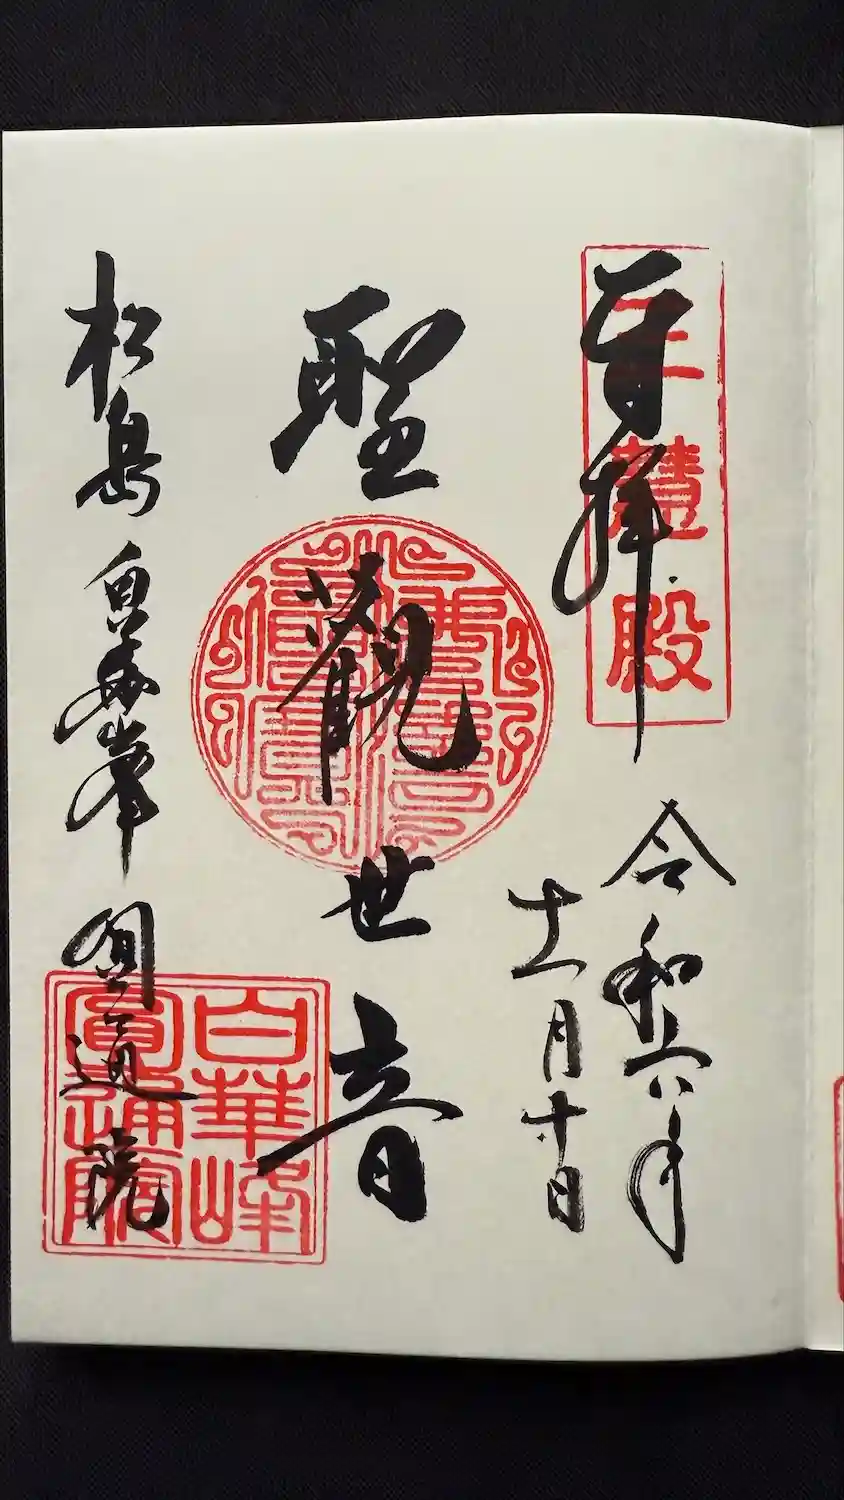 奉拝
三慧殿
令和六年
十一月十日
聖觀世音
松島 白華峯 圓通院
白華峰
圓通院